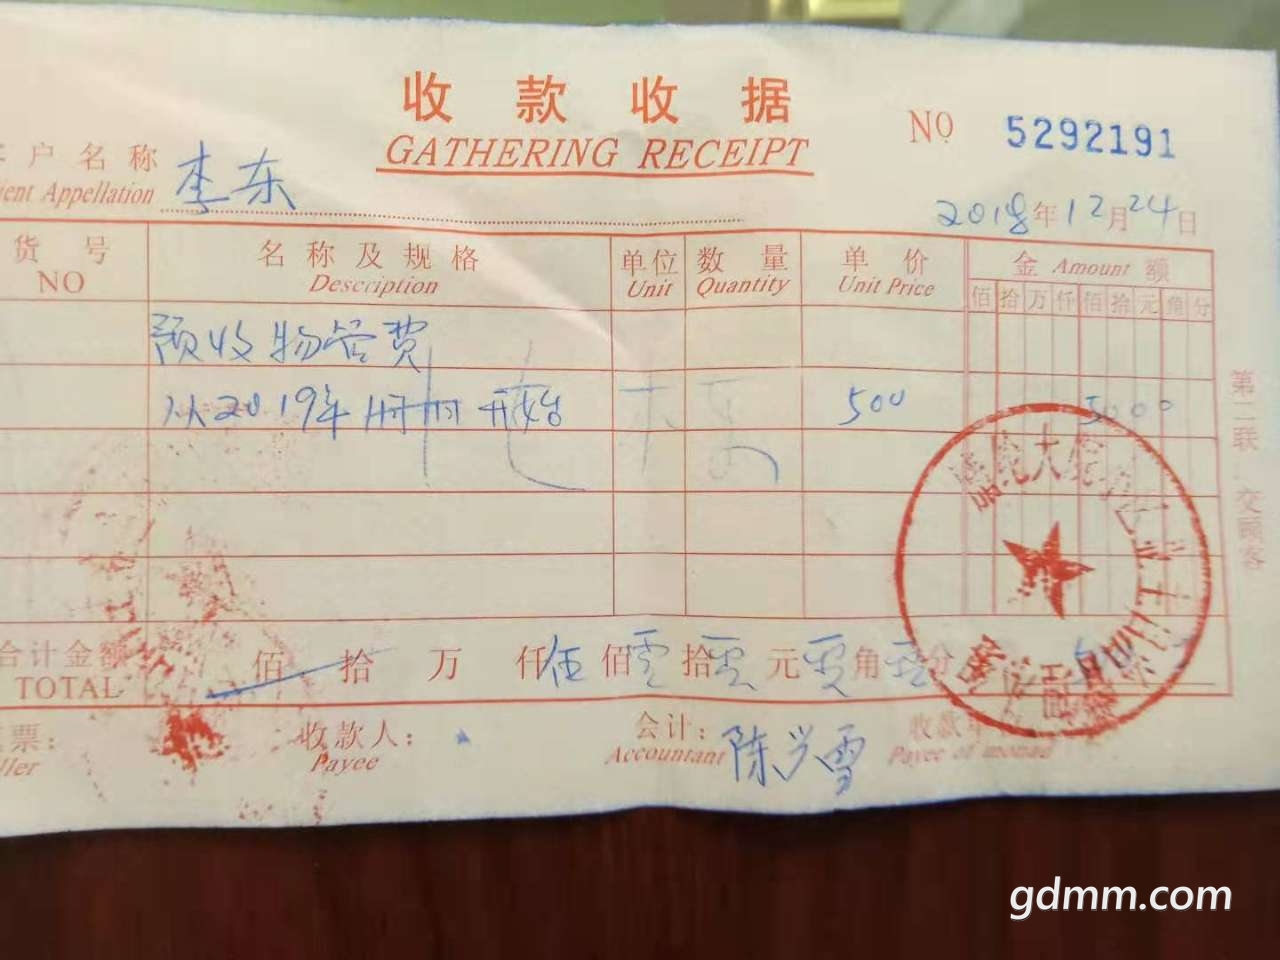 收款收据
GATHERING RECEIPT
NO 5292191
户名称 李东
Appellation
2018年12月24日
货号 名称及规格 单位 数量 单价 金额
NO Description Unit Quantity Unit Price Amount
佰拾万仟佰拾元角分
预收物管费
从2019年 开始 500 5000
第二联 交顾客
合计金额 佰拾万仟伍佰零拾零元零角零分
TOTAL
票: 收款人: 会计: 陈兴雪 收款
Payee Accountant Payee of
gdmm.com